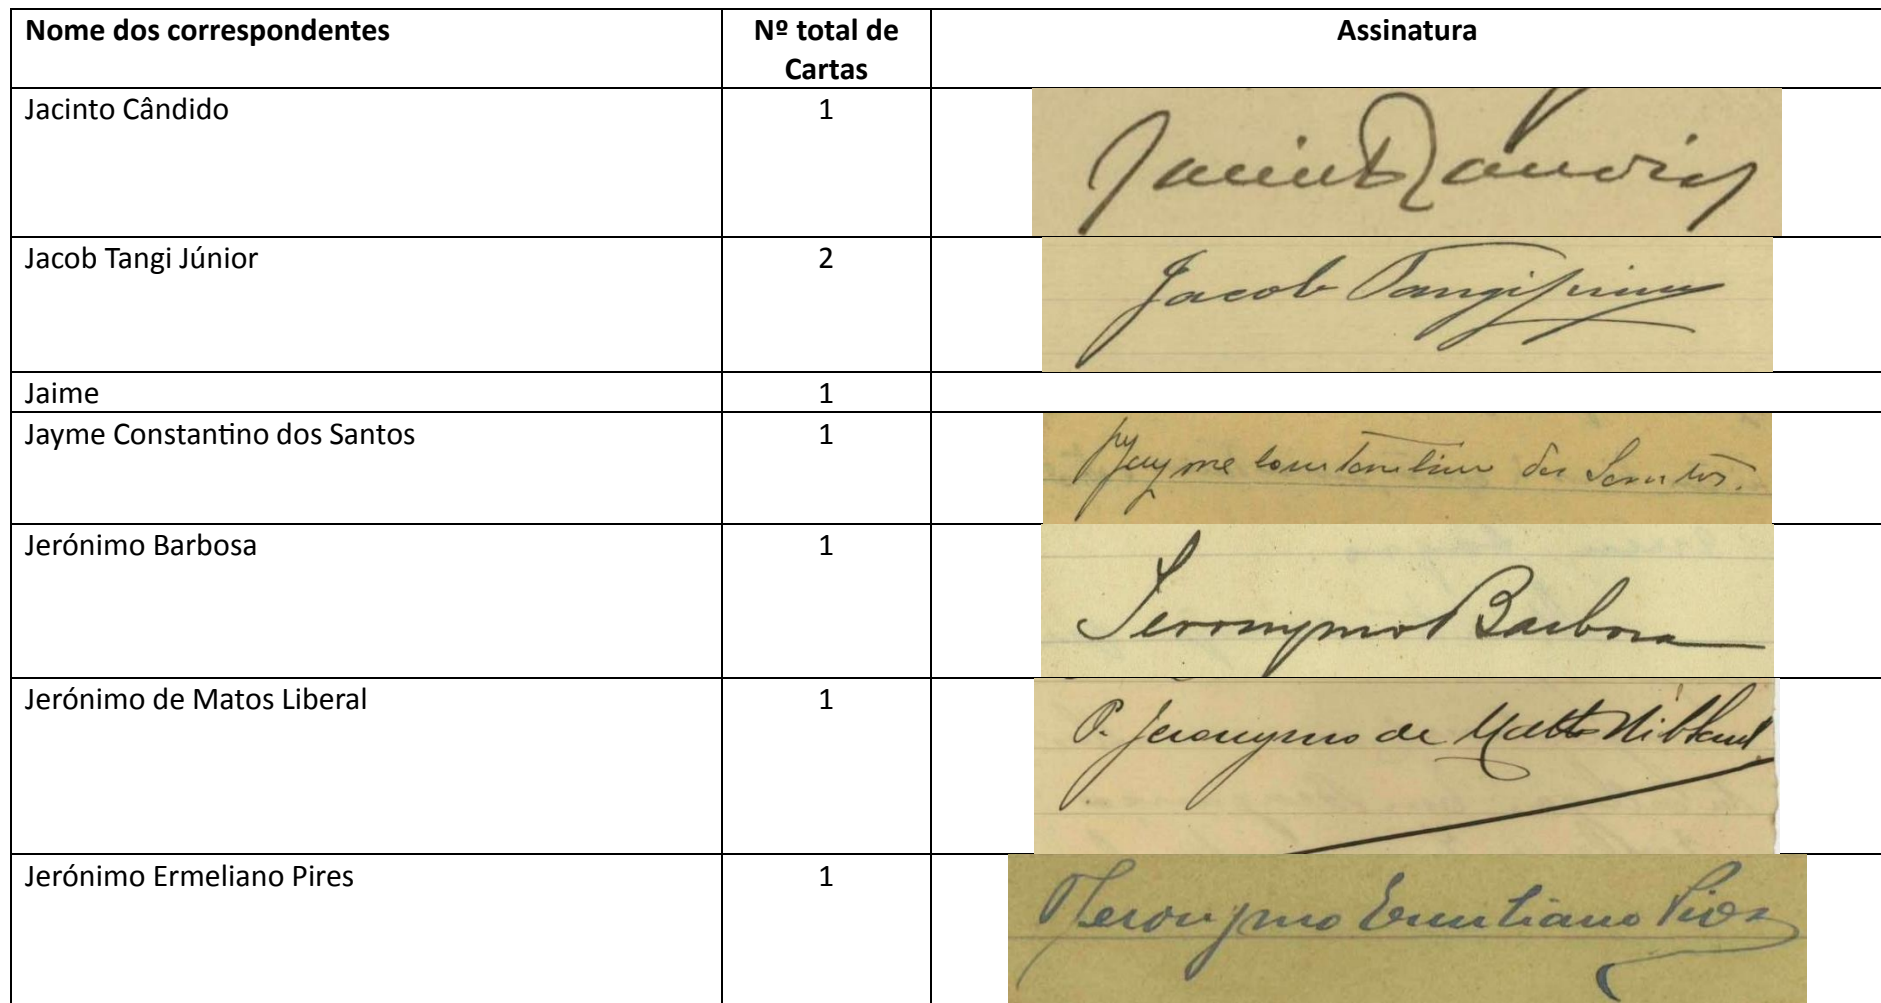 Nome dos correspondentes
Nº total de
Cartas
Assinatura
Jacinto Cândido
1
Jacinto Candido
Jacob Tangi Júnior
2
Jacob Tangi Junior
Jaime
1
Jayme Constantino dos Santos
1
Jayme Constantino dos Santos.
Jerónimo Barbosa
1
Jeronymo Barbosa
Jerónimo de Matos Liberal
1
P. Jeronymo de Mattos
Jerónimo Ermeliano Pires
1
Jeronymo Pires